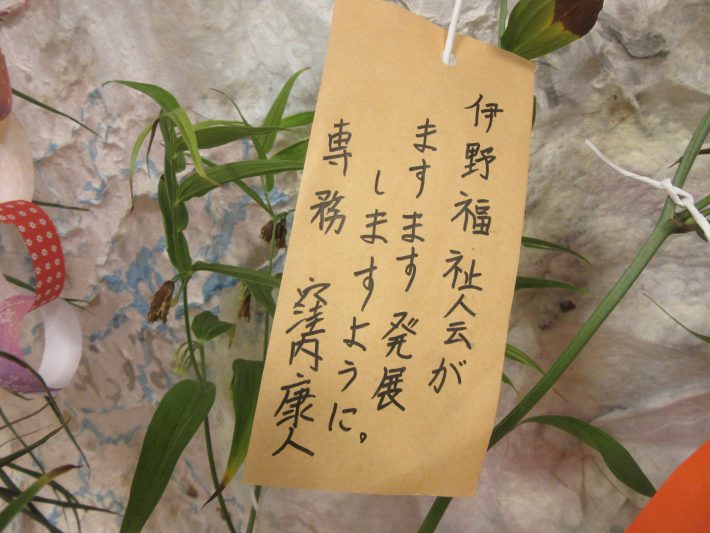 伊野福祉会が
ますます発展
しますように。
専務 窪内康人